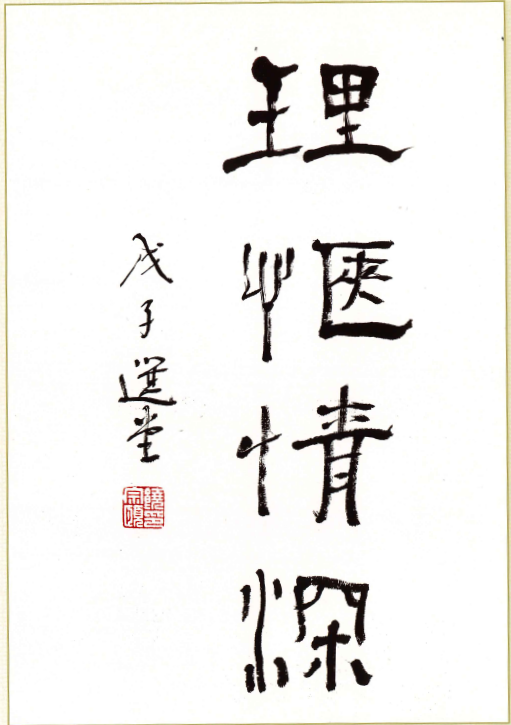 理愜情深
戊子選堂
饒宗頤印